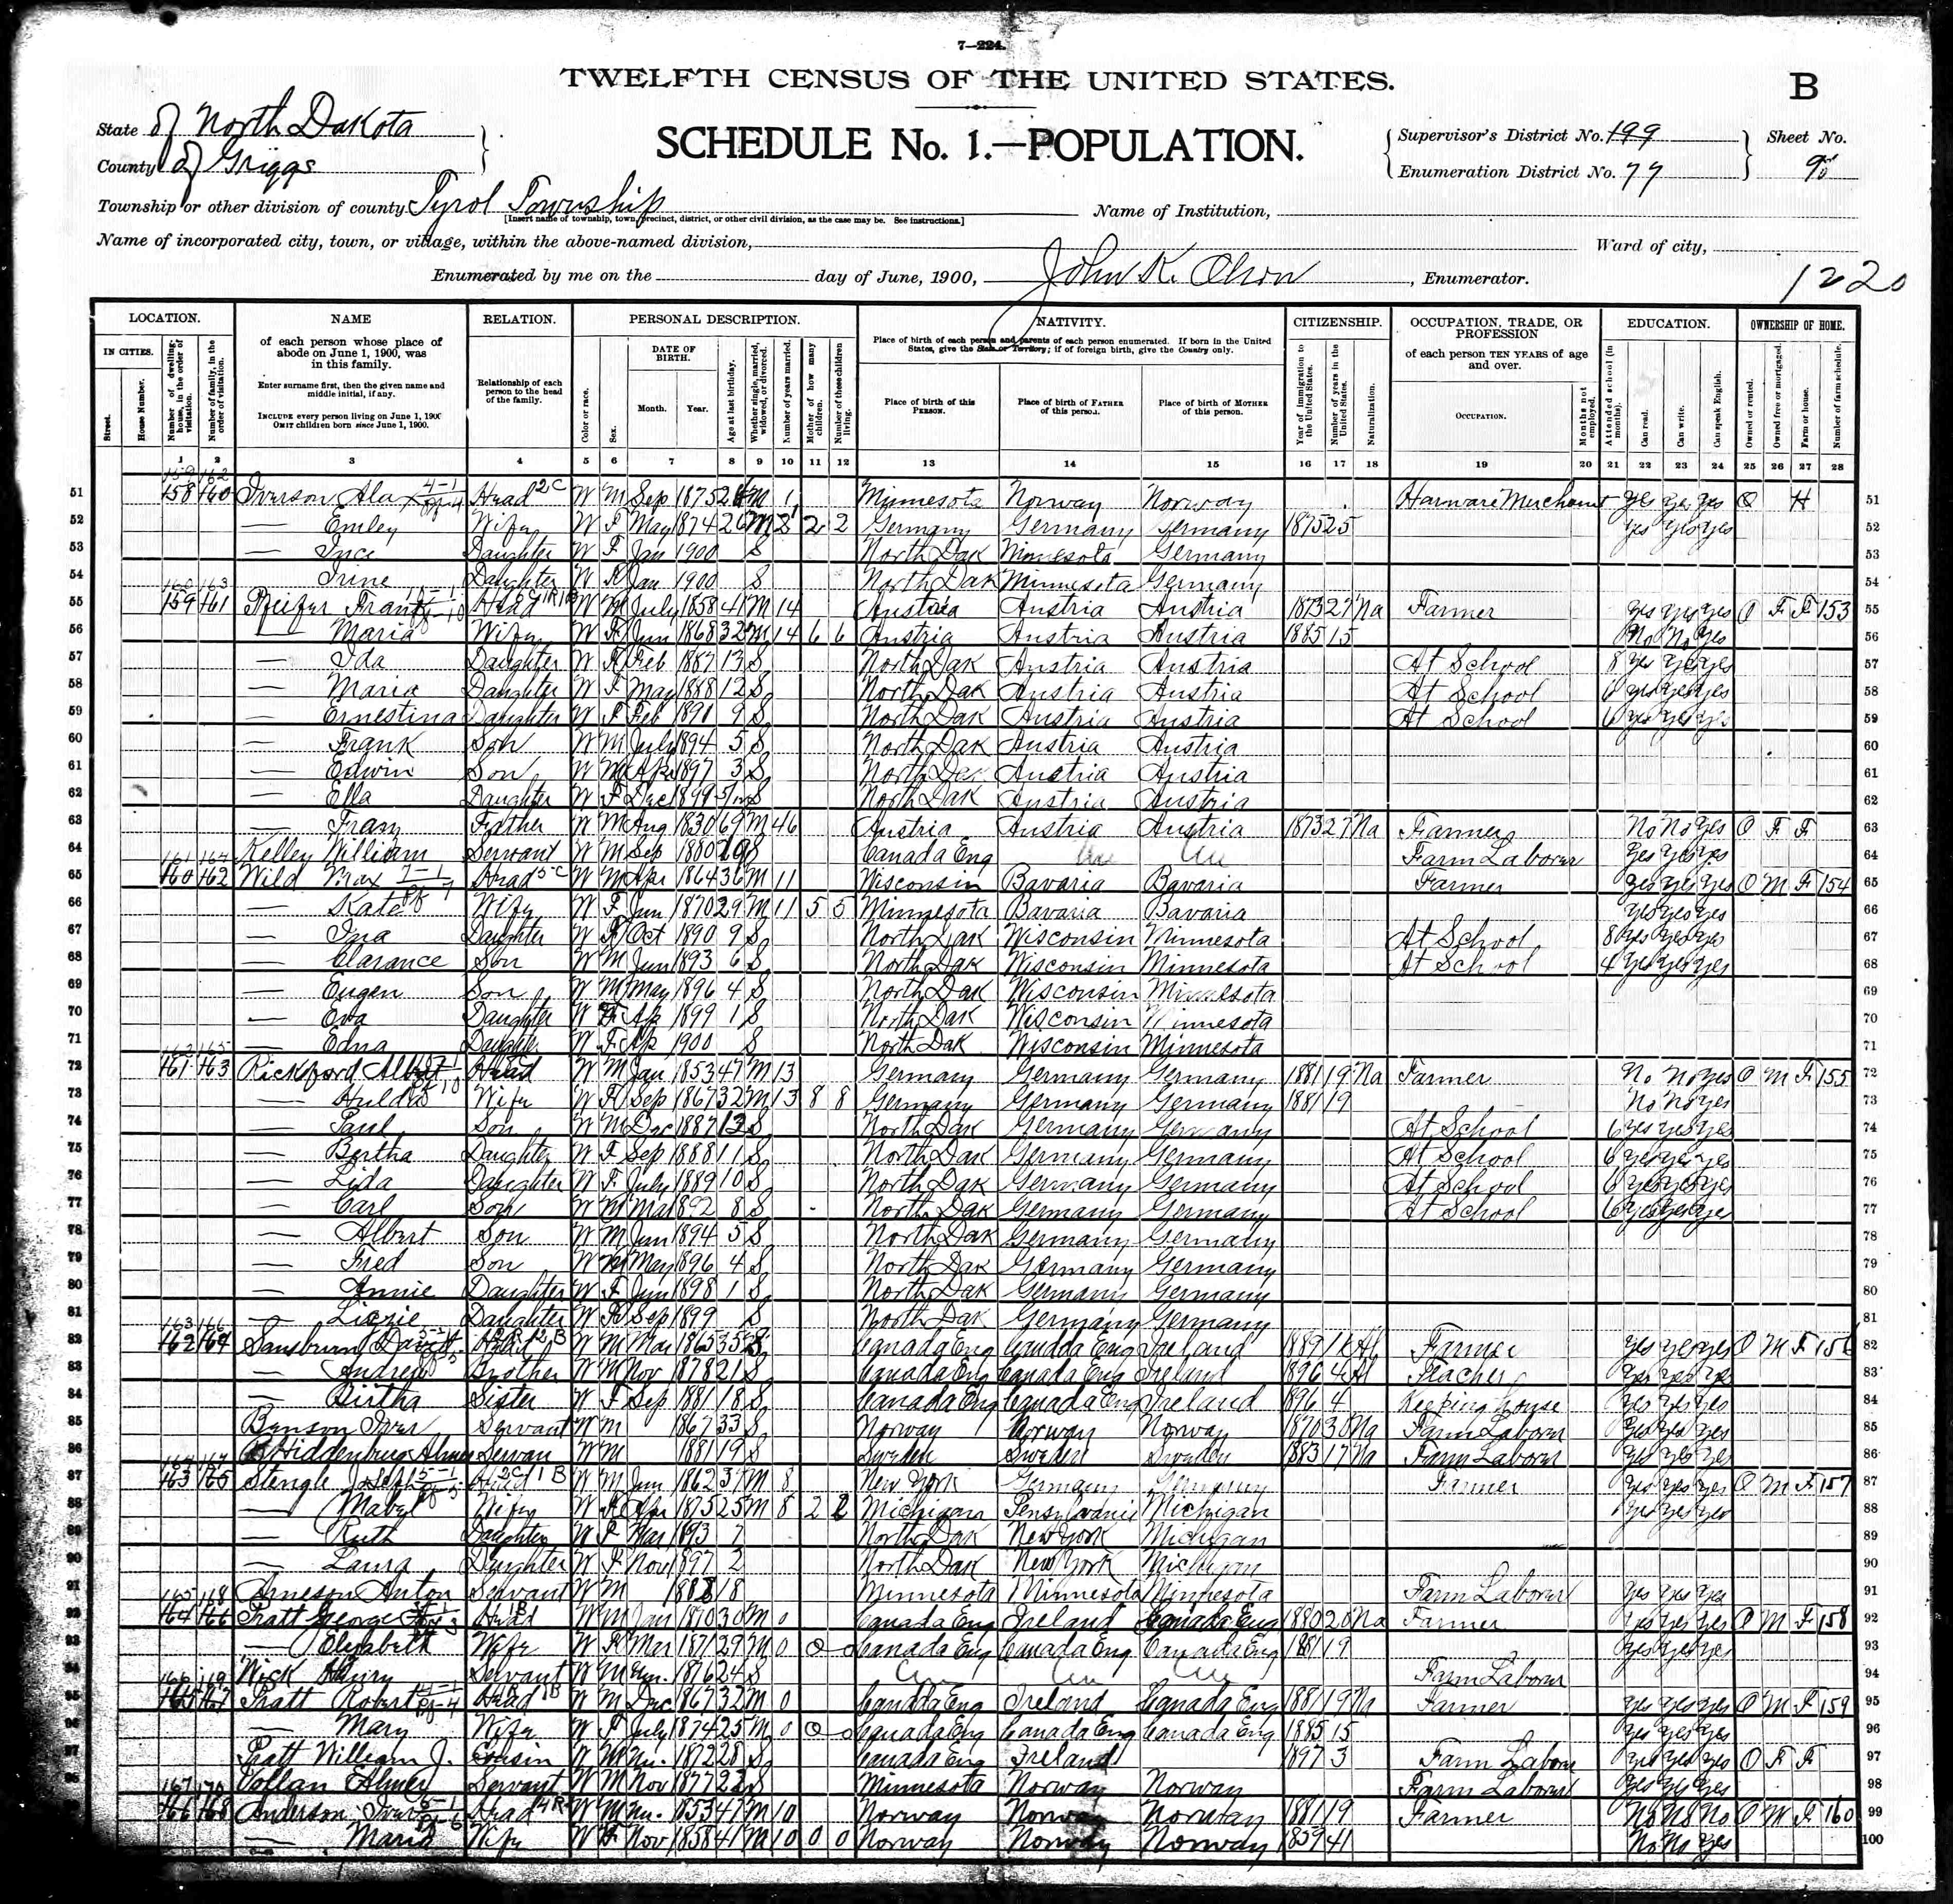 7—224.
TWELFTH CENSUS OF THE UNITED STATES.
B
State of North Dakota
County of Griggs
SCHEDULE No. 1.—POPULATION.
Supervisor's District No. 199
Enumeration District No. 77
Sheet No.
Township or other division of county Tyrol Township
[Insert name of township, town, precinct, district, or other civil division, as the case may be. See instructions.]
Name of Institution,
Name of incorporated city, town, or village, within the above-named division,
Ward of city,
Enumerated by me on the day of June, 1900, John K. Olson, Enumerator.
1220
LOCATION. NAME RELATION. PERSONAL DESCRIPTION. NATIVITY. CITIZENSHIP. OCCUPATION, TRADE, OR PROFESSION EDUCATION. OWNERSHIP OF HOME.
IN CITIES. Street. House Number. Number of dwelling-house, in the order of visitation. Number of family, in the order of visitation.
of each person whose place of abode on June 1, 1900, was in this family.
Enter surname first, then the given name and middle initial, if any.
INCLUDE every person living on June 1, 1900
OMIT children born since June 1, 1900.
Relationship of each person to the head of the family.
Color or race. Sex. DATE OF BIRTH. Month. Year. Age at last birthday. Whether single, married, widowed, or divorced. Number of years married. Mother of how many children. Number of these children living.
Place of birth of each person and parents of each person enumerated. If born in the United States, give the State or Territory; if of foreign birth, give the Country only.
Place of birth of this PERSON. Place of birth of FATHER of this person. Place of birth of MOTHER of this person.
Year of immigration to the United States. Number of years in the United States. Naturalization.
of each person TEN YEARS of age and over.
OCCUPATION. Months not employed.
Attended school (in months). Can read. Can write. Can speak English.
Owned or rented. Owned free or mortgaged. Farm or house. Number of farm schedule.
1 2 3 4 5 6 7 8 9 10 11 12 13 14 15 16 17 18 19 20 21 22 23 24 25 26 27 28
51 158 160 Iverson Head W M Sep 1875 M 1 Minnesota Norway Norway Harware Merchant yes yes yes O H 51
52 — Emley Wife W F May 1874 26 M 2 2 Germany Germany Germany 1875 25 yes yes yes 52
53 — Daughter W F Jan 1900 S North Dak Minnesota Germany 53
54 — Irine Daughter W F Jan 1900 S North Dak Minnesota Germany 54
55 159 161 Pfeifer Frank Head W M July 1858 41 M 14 Austria Austria Austria 1873 27 Na Farmer yes yes yes O F F 153 55
56 — Maria Wife W F Jun 1868 32 M 14 6 6 Austria Austria Austria 1885 15 No No yes 56
57 — Ida Daughter W F Feb 1887 13 S North Dak Austria Austria At School 8 yes yes yes 57
58 — Maria Daughter W F May 1888 12 S North Dak Austria Austria At School 6 yes yes yes 58
59 — Ernestina Daughter W F Feb 1891 9 S North Dak Austria Austria At School 6 yes yes yes 59
60 — Frank Son W M July 1894 5 S North Dak Austria Austria 60
61 — Edwin Son W M Apr 1897 3 S North Dak Austria Austria 61
62 — Ella Daughter W F Dec 1899 S North Dak Austria Austria 62
63 — Franz Father W M Aug 1830 69 M 46 Austria Austria Austria 1873 27 Na Farmer No No yes O F F 63
64 Kelley William Servant W M Sep 1880 19 S Canada Eng Un Un Farm Laborer yes yes yes 64
65 160 162 Wild Max Head W M Apr 1864 36 M 11 Wisconsin Bavaria Bavaria Farmer yes yes yes O M F 154 65
66 — Kate Wife W F Jun 1870 29 M 11 5 5 Minnesota Bavaria Bavaria yes yes yes 66
67 — Ina Daughter W F Oct 1890 9 S North Dak Wisconsin Minnesota At School 8 yes yes yes 67
68 — Clarance Son W M Jun 1893 6 S North Dak Wisconsin Minnesota At School 4 yes yes yes 68
69 — Eugen Son W M May 1896 4 S North Dak Wisconsin Minnesota 69
70 — Eva Daughter W F Ap 1899 1 S North Dak Wisconsin Minnesota 70
71 — Edna Daughter W F Ap 1900 S North Dak Wisconsin Minnesota 71
72 161 163 Rickford Albert Head W M Jan 1853 47 M 13 Germany Germany Germany 1881 19 Na Farmer No No yes O M F 155 72
73 — Hulda Wife W F Sep 1867 32 M 13 8 8 Germany Germany Germany 1881 19 No No yes 73
74 — Paul Son W M Dec 1887 S North Dak Germany Germany At School 6 yes yes yes 74
75 — Bertha Daughter W F Sep 1888 11 S North Dak Germany Germany At School 6 yes yes yes 75
76 — Lida Daughter W F July 1889 10 S North Dak Germany Germany At School 6 yes yes yes 76
77 — Carl Son W M Mar 1892 8 S North Dak Germany Germany At School 6 yes yes yes 77
78 — Albert Son W M Jun 1894 5 S North Dak Germany Germany 78
79 — Fred Son W M May 1896 4 S North Dak Germany Germany 79
80 — Annie Daughter W F Jun 1898 1 S North Dak Germany Germany 80
81 — Lizzie Daughter W F Sep 1899 S North Dak Germany Germany 81
82 162 164 Sansburn David Head W M Mar 1865 35 S Canada Eng Canada Eng Ireland 1889 Al Farmer yes yes yes O M F 156 82
83 — Andrew Brother W M Nov 1878 21 S Canada Eng Canada Eng Ireland 1896 4 Al Teacher yes yes yes 83
84 — Birtha Sister W F Sep 1881 18 S Canada Eng Canada Eng Ireland 1896 4 Keeping house yes yes yes 84
85 Benson Iver Servant W M 1867 33 S Norway Norway Norway 1870 30 Na Farm Laborer yes yes yes 85
86 Hiddenburg Servan W M 1881 19 S Sweden Sweden Sweden 1883 17 Na Farm Laborer yes yes yes 86
87 163 165 Stengle Joseph Head W M Jun 1862 37 M 8 New York Germany Germany Farmer yes yes yes O M F 157 87
88 — Mabel Wife W F Apr 1875 25 M 8 2 2 Michigan Pensylvania Michigan yes yes yes 88
89 — Ruth Daughter W F Mar 1893 7 North Dak New York Michigan 89
90 — Laura Daughter W F Nov 1897 2 North Dak New York Michigan 90
91 Arneson Anton Servant W M 18 Minnesota Minnesota Minnesota Farm Laborer yes yes yes 91
92 164 166 Pratt George Head W M Jan 1870 30 M 0 Canada Eng Ireland Canada Eng 1880 20 Na Farmer yes yes yes O M F 158 92
93 — Elizabeth Wife W F Mar 1871 29 M 0 0 0 Canada Eng Canada Eng Canada Eng 1881 19 yes yes yes 93
94 Wick Henry Servant W M Un. 1876 24 S Un Un Un Farm Laborer 94
95 165 167 Pratt Robert Head W M Dec 1867 32 M 0 Canada Eng Ireland Canada Eng 1881 19 Na Farmer yes yes yes O M F 159 95
96 — Mary Wife W F July 1874 25 M 0 0 0 Canada Eng Canada Eng Canada Eng 1885 15 yes yes yes 96
97 Pratt William J. Cousin W M Un. 1872 28 S Canada Eng Ireland 1897 3 Farm Labor yes yes yes O F F 97
98 Vollan Elmer Servant W M Nov 1877 22 S Minnesota Norway Norway Farm Laborer yes yes yes 98
99 166 168 Anderson Iver Head W M Un. 1853 47 M 10 Norway Norway Norway 1881 19 Farmer No No No O M F 160 99
100 — Maria Wife W F Nov 1858 41 M 10 0 0 Norway Norway Norway 1859 41 No No yes 100